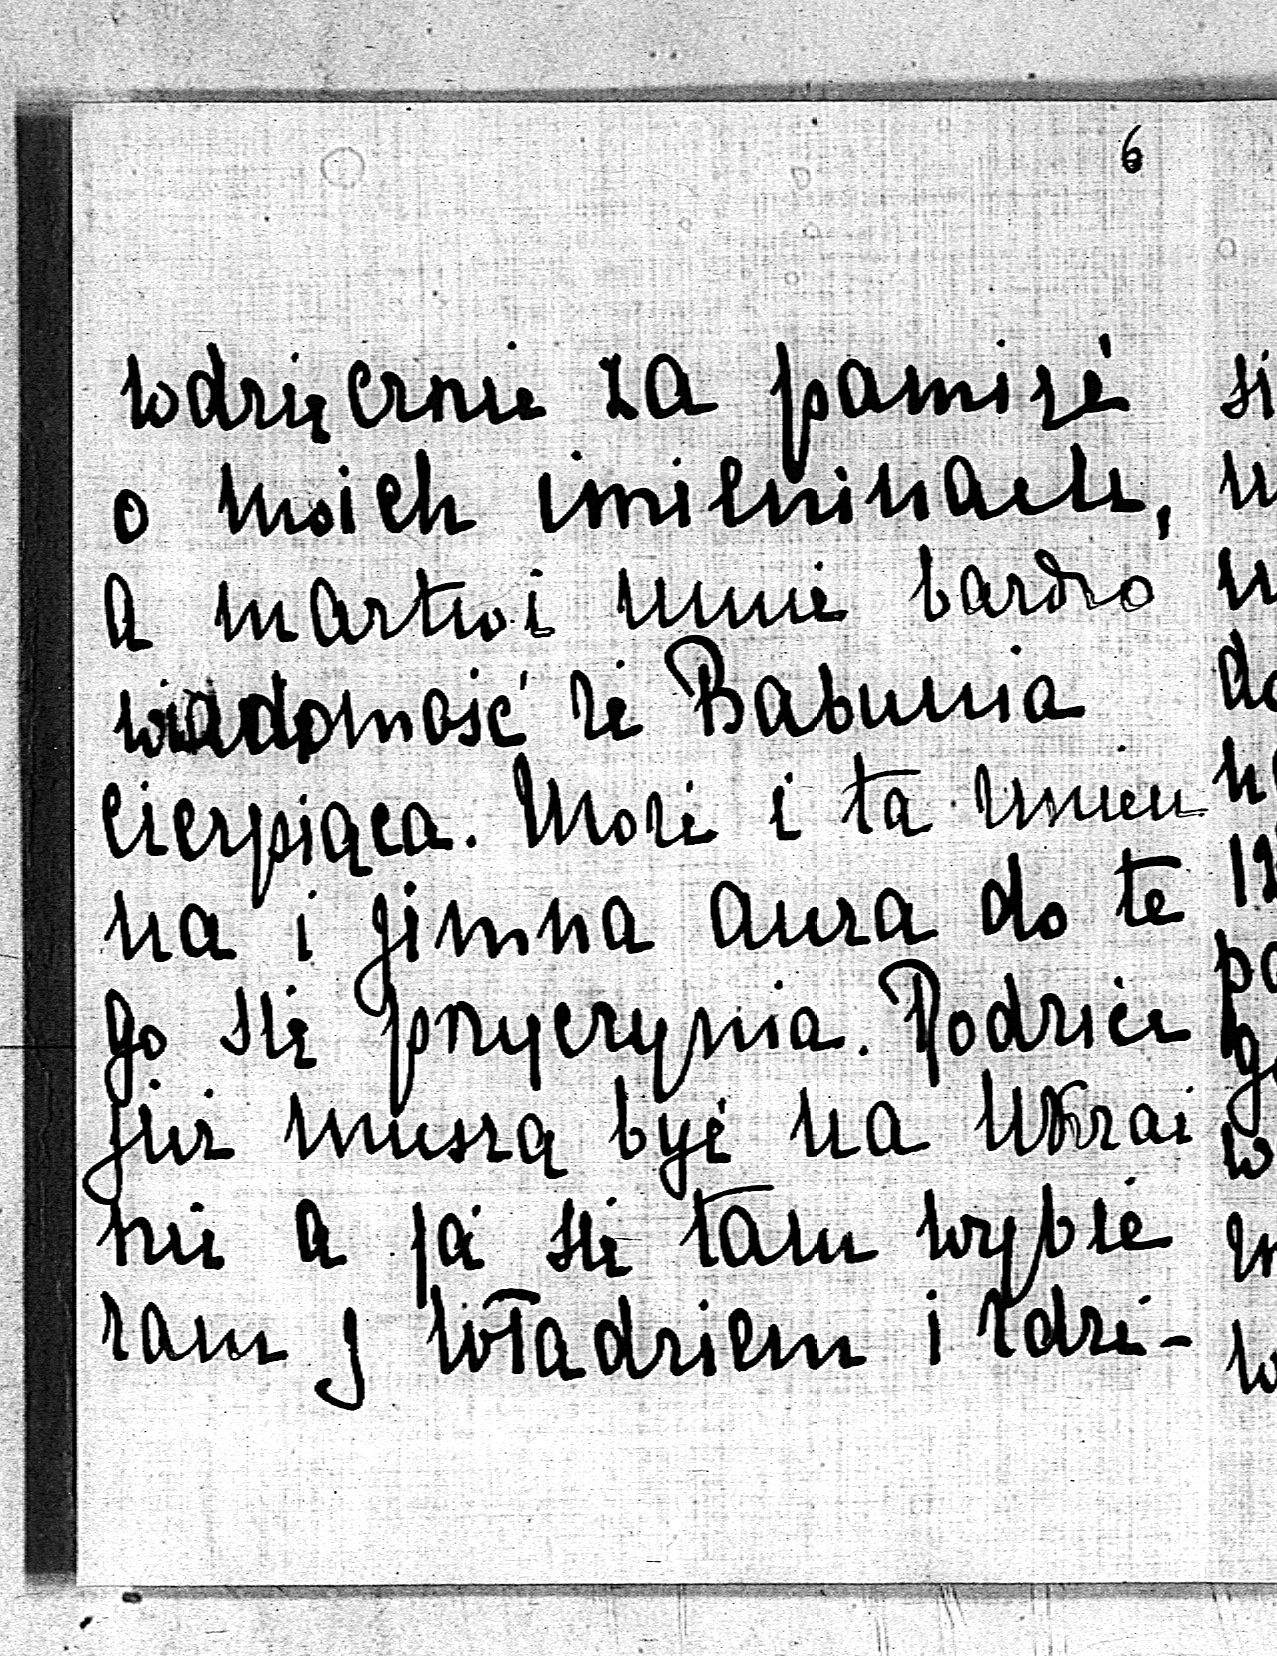 6
wdzięcznie za pamięć
o moich imieninach,
a martwi mnie bardzo
wiadomość że Babunia
cierpiąca. Może i ta zmien
na i zimna aura do te
go się przyczynia. Rodzice
już muszą być na Ukrai
nie a ja się tam wybie
ram z Władziem i Zdzi-